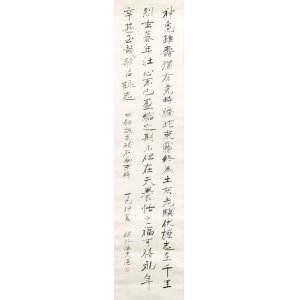 神龜雖壽猶有竟時騰蛇乘霧終為土灰老驥伏櫪志在千里
烈士暮年壯心不已盈縮之期不但在天養怡之福可得永年
幸甚至哉歌以詠志
丁巳仲夏